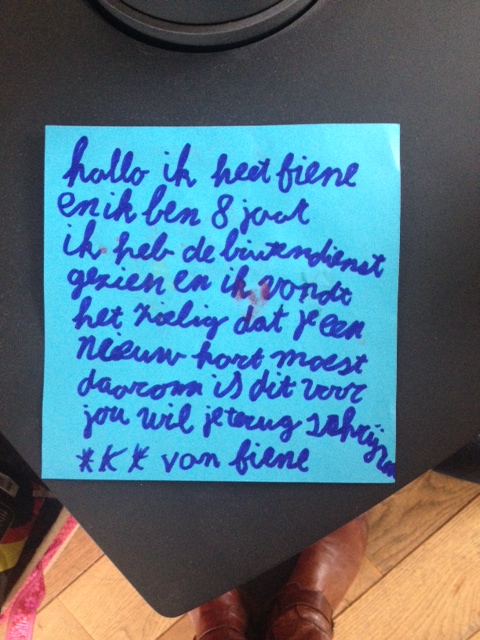 hallo ik heet fiene
en ik ben 8 jaar
ik heb de buitendienst
gezien en ik vondt
het zielig dat je een
nieuw hart moest
daarom is dit voor
jou wil je terug schrijven
*K* van fiene